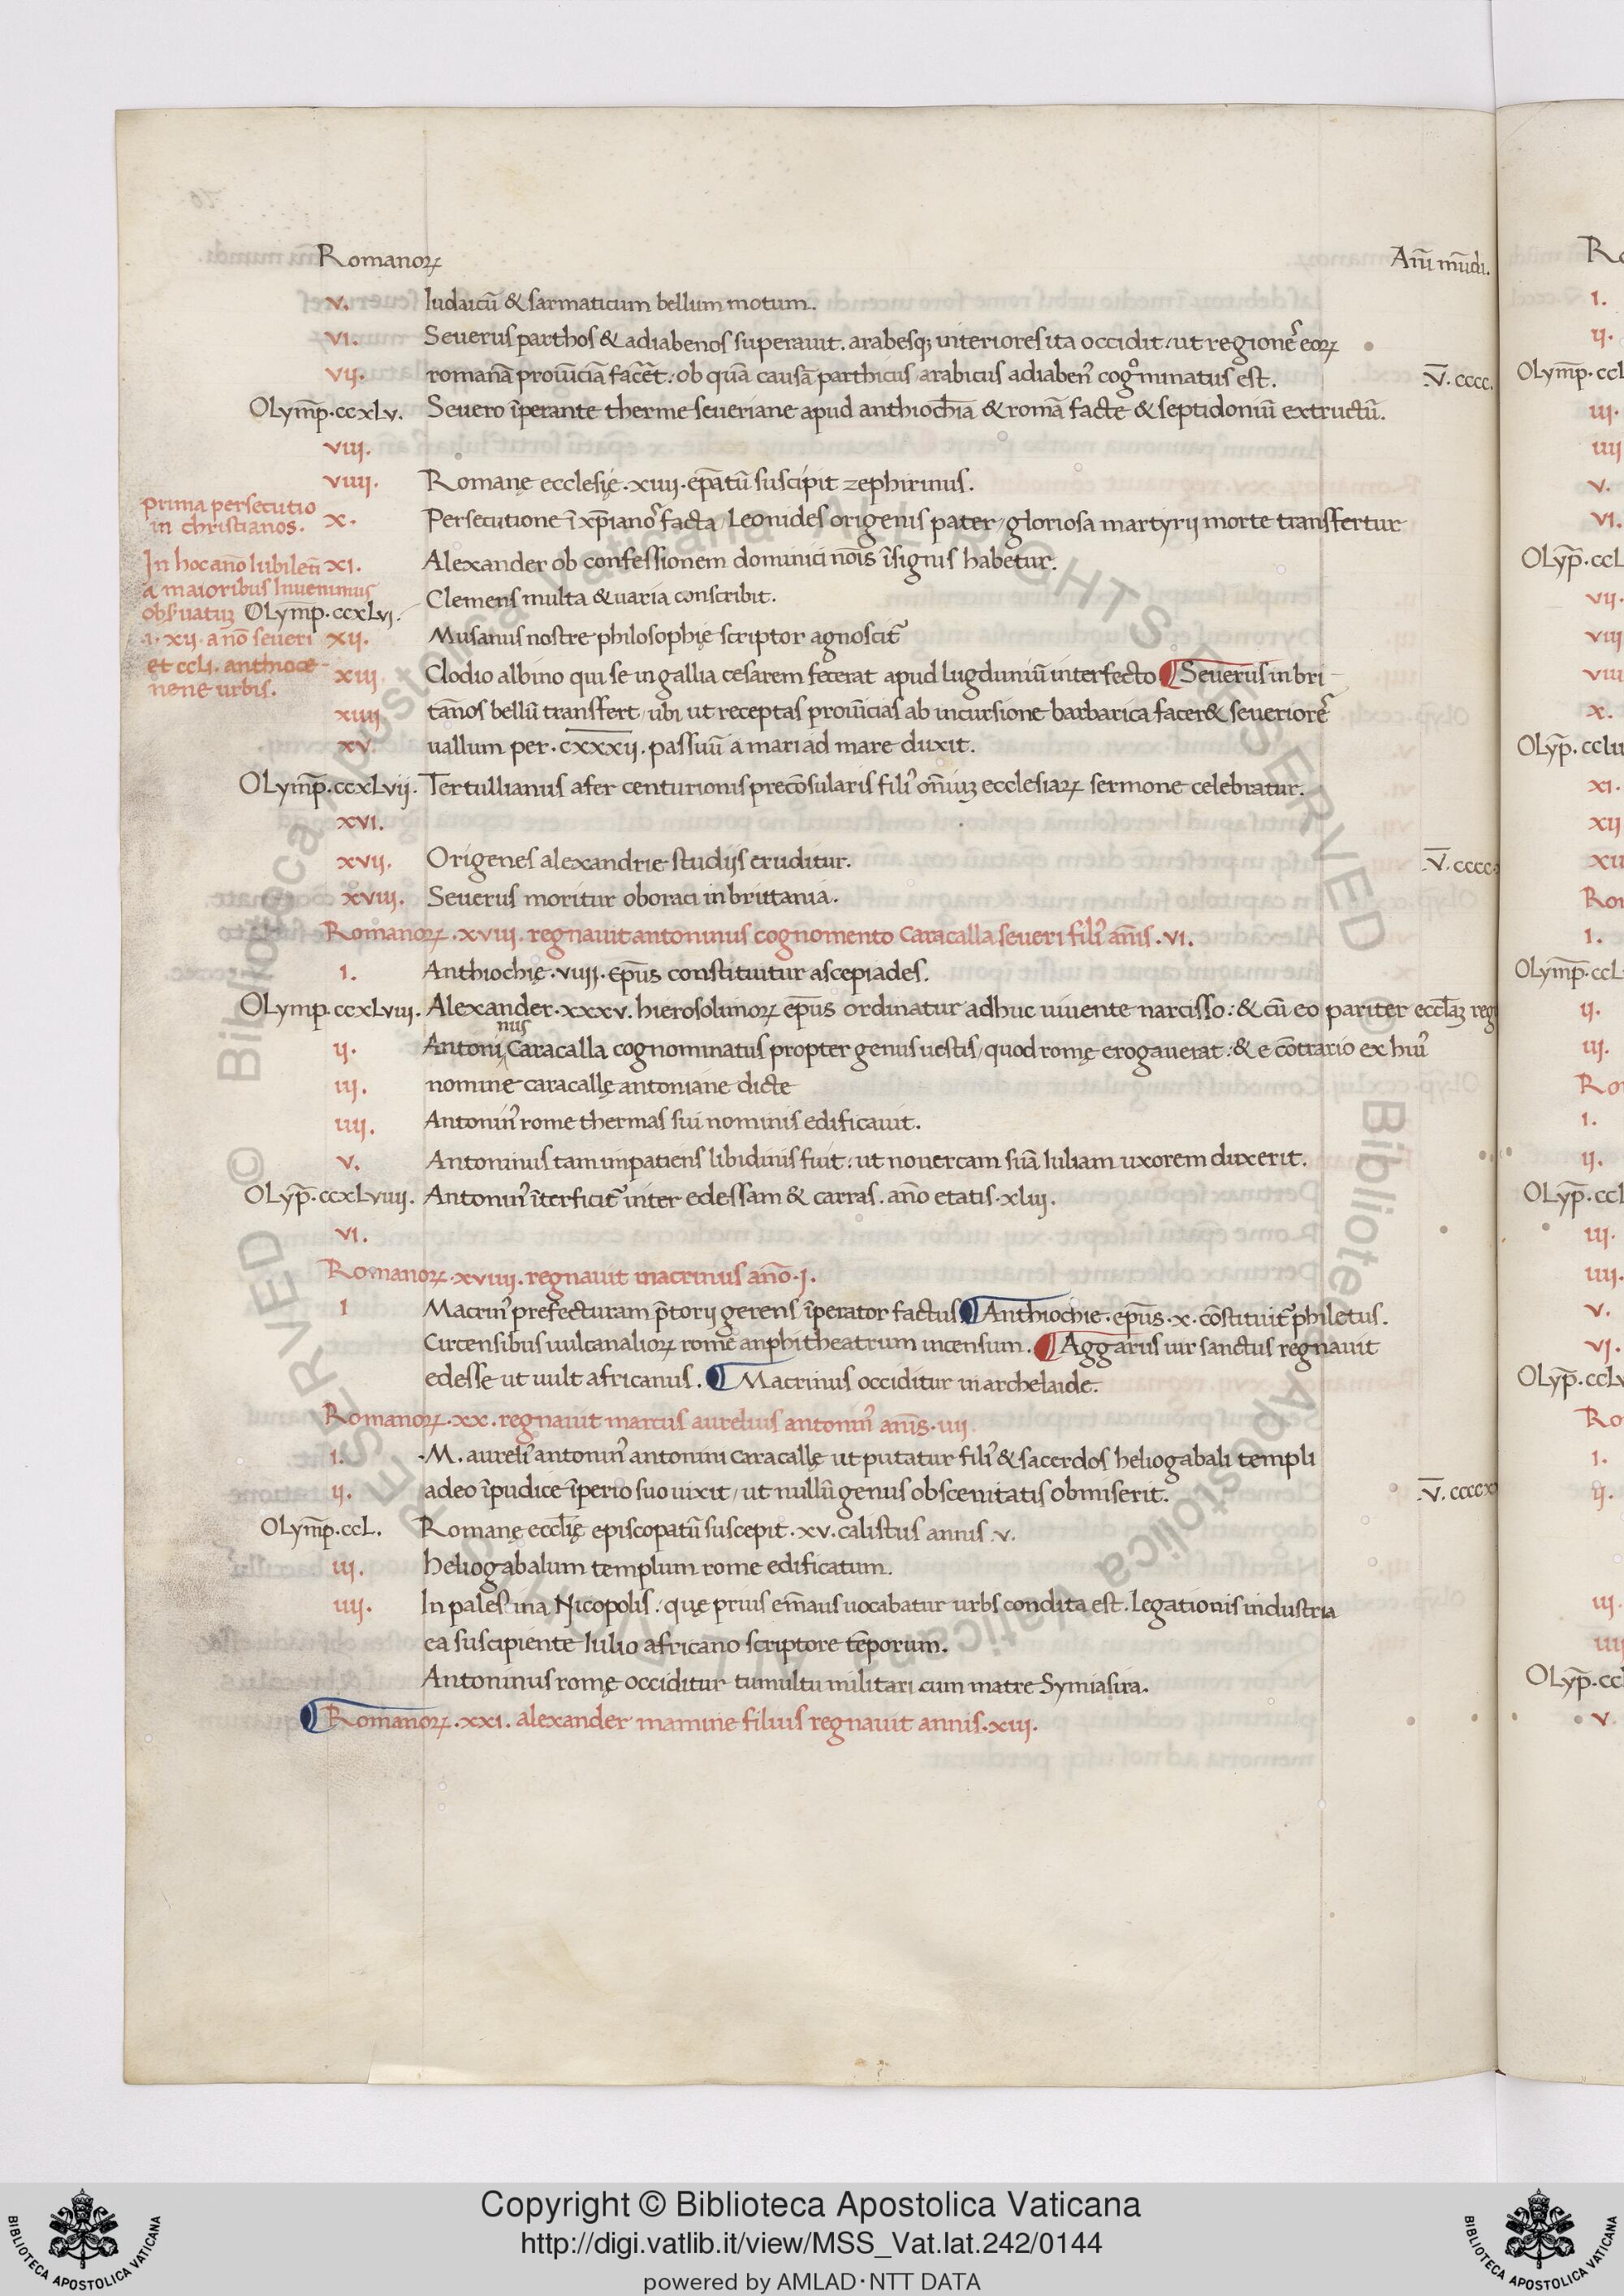 Romanoꝝ Anī mūdi.
v. Iudaicū & sarmaticum bellum motum.
vi. Seuerus parthos & adiabenos superauit. arabesqꝫ interiores ita occidit / ut regionē eoꝝ
vii. romanā prouīciā facēt: ob quā causā parthicus arabicus adiabenꝰ cogⁿominatus est. .V̄. cccc.
OLym̄p. ccxLv. Seuero īperante therme seueriane apud anthiochiā & romā facte & septidoniū extructū.
viii.
viiii. Romanę ecclesię .xiiii. ep̄atū suscipit zephirinus.
prima persecutio
in christianos. x. Persecutione ī xp̄ianoˢ facta / Leonides origenis pater / gloriosa martyrij morte transfertur
In hoc anō Iubileū xi. Alexander ob confessionem dominici nōis īsignis habetur.
a maioribus Inuenimus
obsuatuꝫ OLymp. ccxLvi. Clemens multa & uaria conscribit.
.i. xii. anō seueri xii. Musanus nostre philosophię scriptor agnoscit᷑
et ccli. anthioce-
nene urbis. xiii. Clodio albino qui se in gallia cesarem fecerat apud lugduniū interfecto ¶ Seuerus in bri-
xiiii. tānos bellū transfert / ubi ut receptas prouīcias ab incursione barbarica facer& seueriorēˢ
xv. uallum per .cxxxii. passuū a mari ad mare duxit.
OLym̄p. ccxLvii. Tertullianus afer centurionis precōsularis filiꝰ om̄iuꝫ ecclesiaꝝ sermone celebratur.
xvi.
xvii. Origenes alexandrie studijs eruditur. .V̄. cccc.
xviii. Seuerus moritur oboraci in brittania.
Romanoꝝ .xviii. regnauit antoninus cognomento Caracalla seueri filiꝰ anīs .vi.
1. Anthiochię .viiii. ep̄us constituitur ascepiades.
OLymp. ccxLviii. Alexander .xxxv. hierosolimoꝝ ep̄us ordinatur adhuc uiuente narcisso: & cū eo pariter eccl̄aꝫ reg
nus
ii. Antoni Caracalla cognominatus propter genus uestis / quod romę erogauerat: & e cōtrario ex huiꝰ
iii. nomine caracallę antoniane dicte
iiii. Antoninꝰ rome thermas sui nominis edificauit.
v. Antoninus tam impatiens libidinis fuit: ut nouercam suā Iuliam uxorem duxerit.
OLyp̄. ccxLviiii. Antoninꝰ īterficit᷑ inter edessam & carras. anō etatis .xliii.
vi.
Romanoꝝ .xviiii. regnauit macrinus anō .j.
1 Macrinꝰ prefecturam p̄torij gerens īperator factus ¶ Anthiochie. ep̄us .x. cōstituit᷑ philetus.
Circensibus uulcanalioꝝ rome anphitheatrum incensum. ¶ Aggarus uir sanctus regnauit
edesse ut uult africanus. ¶ Macrinus occiditur in archelaide.
Romanoꝝ .xx. regnauit marcus aurelius antoninꝰ anīs .iiii
1. .M. aureliꝰ antoninꝰ antonini Caracallę ut putatur filiꝰ & sacerdos heliogabali templi
ii. adeo īpudice īperio suo uixit / ut nullū genus obscenitatis obmiserit. .V̄. ccccx
OLym̄p. ccL. Romanę eccl̄ię episcopatū suscepit .xv. calistus annis .v.
iii. heliogabalum templum rome edificatum.
iiii. In palestina Nicopolis: quę prius em̄aus uocabatur urbs condita est. Legationis industria
ea suscipiente Iulio africano scriptore tēporum.
Antoninus romę occiditur tumultu militari cum matre Symiasira.
¶ Romanoꝝ .xxi. alexander mamine filius regnauit annis .xiii.
Copyright © Biblioteca Apostolica Vaticana
http://digi.vatlib.it/view/MSS_Vat.lat.242/0144
powered by AMLAD · NTT DATA